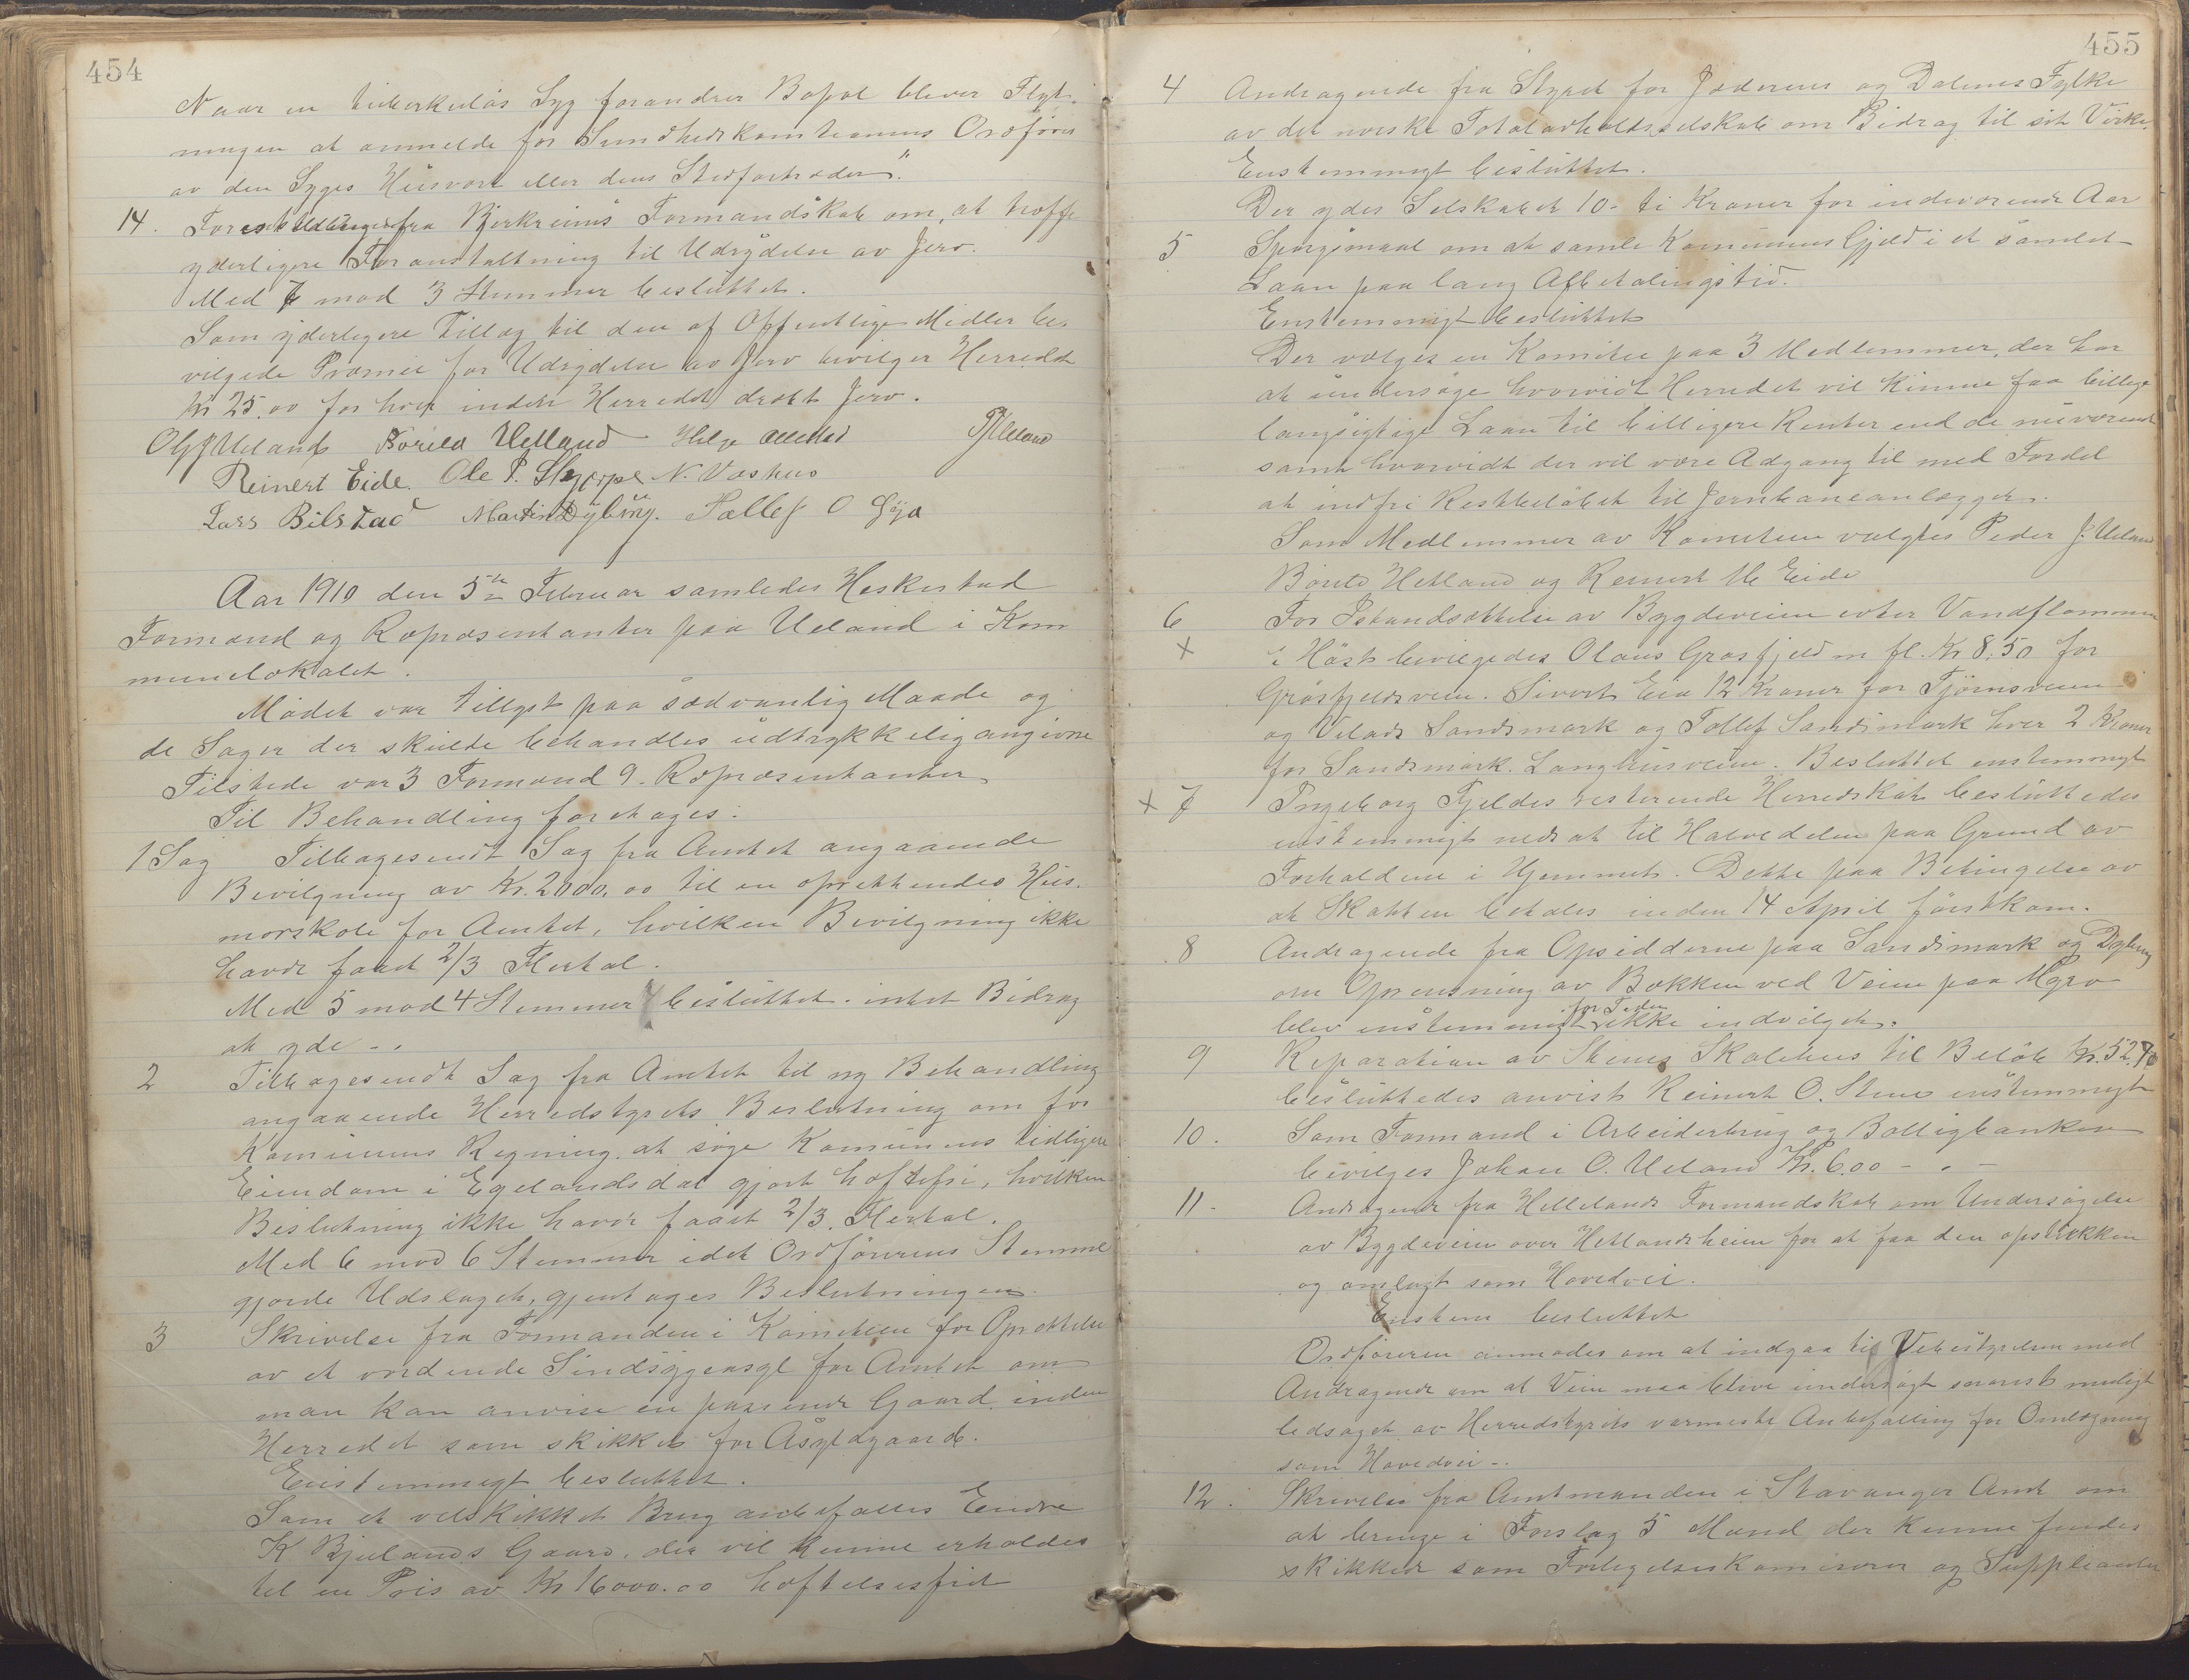 454
Naar en tuberkuløs Syg forandrer Bopæl bliver Flyt-
ningen at anmelde for Sundhedskomisionens Ordfører
av den Syges Husvært eller dens Stedfortræder".
14. Forestillinger fra Bjerkreims Formandskab om, at træffe
yderligere Foranstaltning til Udrydelse av Jerv.
Med 7 mod 3 Stemmer besluttet.
Som yderligere Tillæg til den af Offentlige Midler be-
vilgede Præmie for Udrydelse av Jerv bevilger Herredet
Kr 25.00 for hver inden Herredet dræbt Jerv.
Helland Helge
Reinert Eide. Ole P. Skjerpe N. Vashus
Lars Bilstad Martin Dybing. Tallef O Eja
Aar 1910 den 5te Februar samledes Heskestad
Formænd og Repræsentanter paa Ueland i Kom
munelokalet.
Mødet var tillyst paa sædvanlig Maade og
de Sager der skulde behandles udtrykkelig angivne
Tilstede var 3 Formænd 9 Repræsentanter
Til Behandling foretages:
1 Sag Tilbagesendt Sag fra Amtet angaaende
Bevilgning av Kr. 2000,00 til en oprettendes Hus-
morskole for Amtet, hvilken Bevilgning ikke
havde faaet 2/3 Flertal.
Med 5 mod 4 Stemmer besluttet intet Bidrag
at yde -.
2 Tilbagesendt Sag fra Amtet til ny Behandling
angaaende Herredstyrets Beslutning om for
Komunens Regning at søge Komunens tidligere
Eiendom i Egelandsdal gjort hæftefri, hvilken
Beslutning ikke havde faaet 2/3 Flertal.
Med 6 mod 6 Stemmer idet Ordførerens Stemme
gjorde Udslaget, gjentages Beslutningen
3 Skrivelse fra Formanden i Komiteen for Oprettelse
av et vordende Sindsygeasyl for Amtet om
man kan anvise en passende Gaard inden
Herredet som skikket for Asylgaard.
Enstemmigt besluttet.
Som et velskikket Brug anbefalles Endre
K Bjulands Gaard, der vil kunne erholdes
til en Pris av Kr 16000.00 hæftelsesfrit
455
4 Andragende fra Styret for Jæderens og Dalernes Fylke
av det norske Totalavholdsselskab om Bidrag til sit Virke.
Enstemmigt besluttet.
Der ydes Selskabet 10- ti Kroner for indeværende Aar
5 Spørgsmaal om at samle Komunens Gjeld i et samlet
Laan paa lang Afbetalingstid.
Enstemmigt besluttet
Der vælges en Komitee paa 3 Medlemmer, der har
at undersøge hvorvidt Herredet vil kunne faa billige
langsigtige Laan til billigere Renter end de nuværende
samt hvorvidt der vil være Adgang til med Fordel
at indfri Restbeløbet til Jernbaneanlægget.
Som Medlemmer av Komiteen valgtes Peder J. Ueland
Børild Hetland og Reinert Eide
6 For Istandsættelse av Bygdeveien efter Vandflommen
x i Høst bevilgedes Olaus Grøsfjeld m fl. Kr 8.50 for
Grøsfjeldsveien. Sivert Eia 12 Kroner for Tjørnsveien
og Velads Sandsmark og Tollef Sandsmark hver 2 Kroner
for Sandsmark. Langhusveien. Besluttet enstemmigt
x 7 Ingeborg Fjeldes resterende Herredskat besluttedes
enstemmigt nedsat til Halvedelen paa Grund av
Forholdene i Hjemmet. Dette paa Betingelse av
at Skatten betales inden 14 April førstkom.
8 Andragende fra Opsidderne paa Sandsmark og Dybing
om Oprensning av Bækken ved Veien paa
blev enstemmigt for Tiden ikke indvilget.
9 Reparation av Stens Skolehus til Beløb Kr. 52.70
besluttedes anvist Reinert O. Stene enstemmigt
10. Som Formand i Arbeiderbrug og Boligbanken
bevilges Johan O. Ueland Kr. 6.00 - . -
11. Andragende fra Hellelands Formandskab om Undersøgelse
av Bygdeveien over Hetlandsheien for at faa den opstukken
og omlagt som Hovedvei.
Enstem besluttet
Ordføreren anmodes om at indgaa til Veibestyrelsen med
Andragende om at Veien maa blive undersøgt snarest muligt
ledsaget av Herredstyrets varmeste Anbefalling for Omlægning
som Hovedvei -.
12. Skrivelse fra Amtmanden i Stavanger Amt om
at bringe i Forslag 5 Mænd der kunne findes
skikket som Forligelseskomisærer og Suppleanter